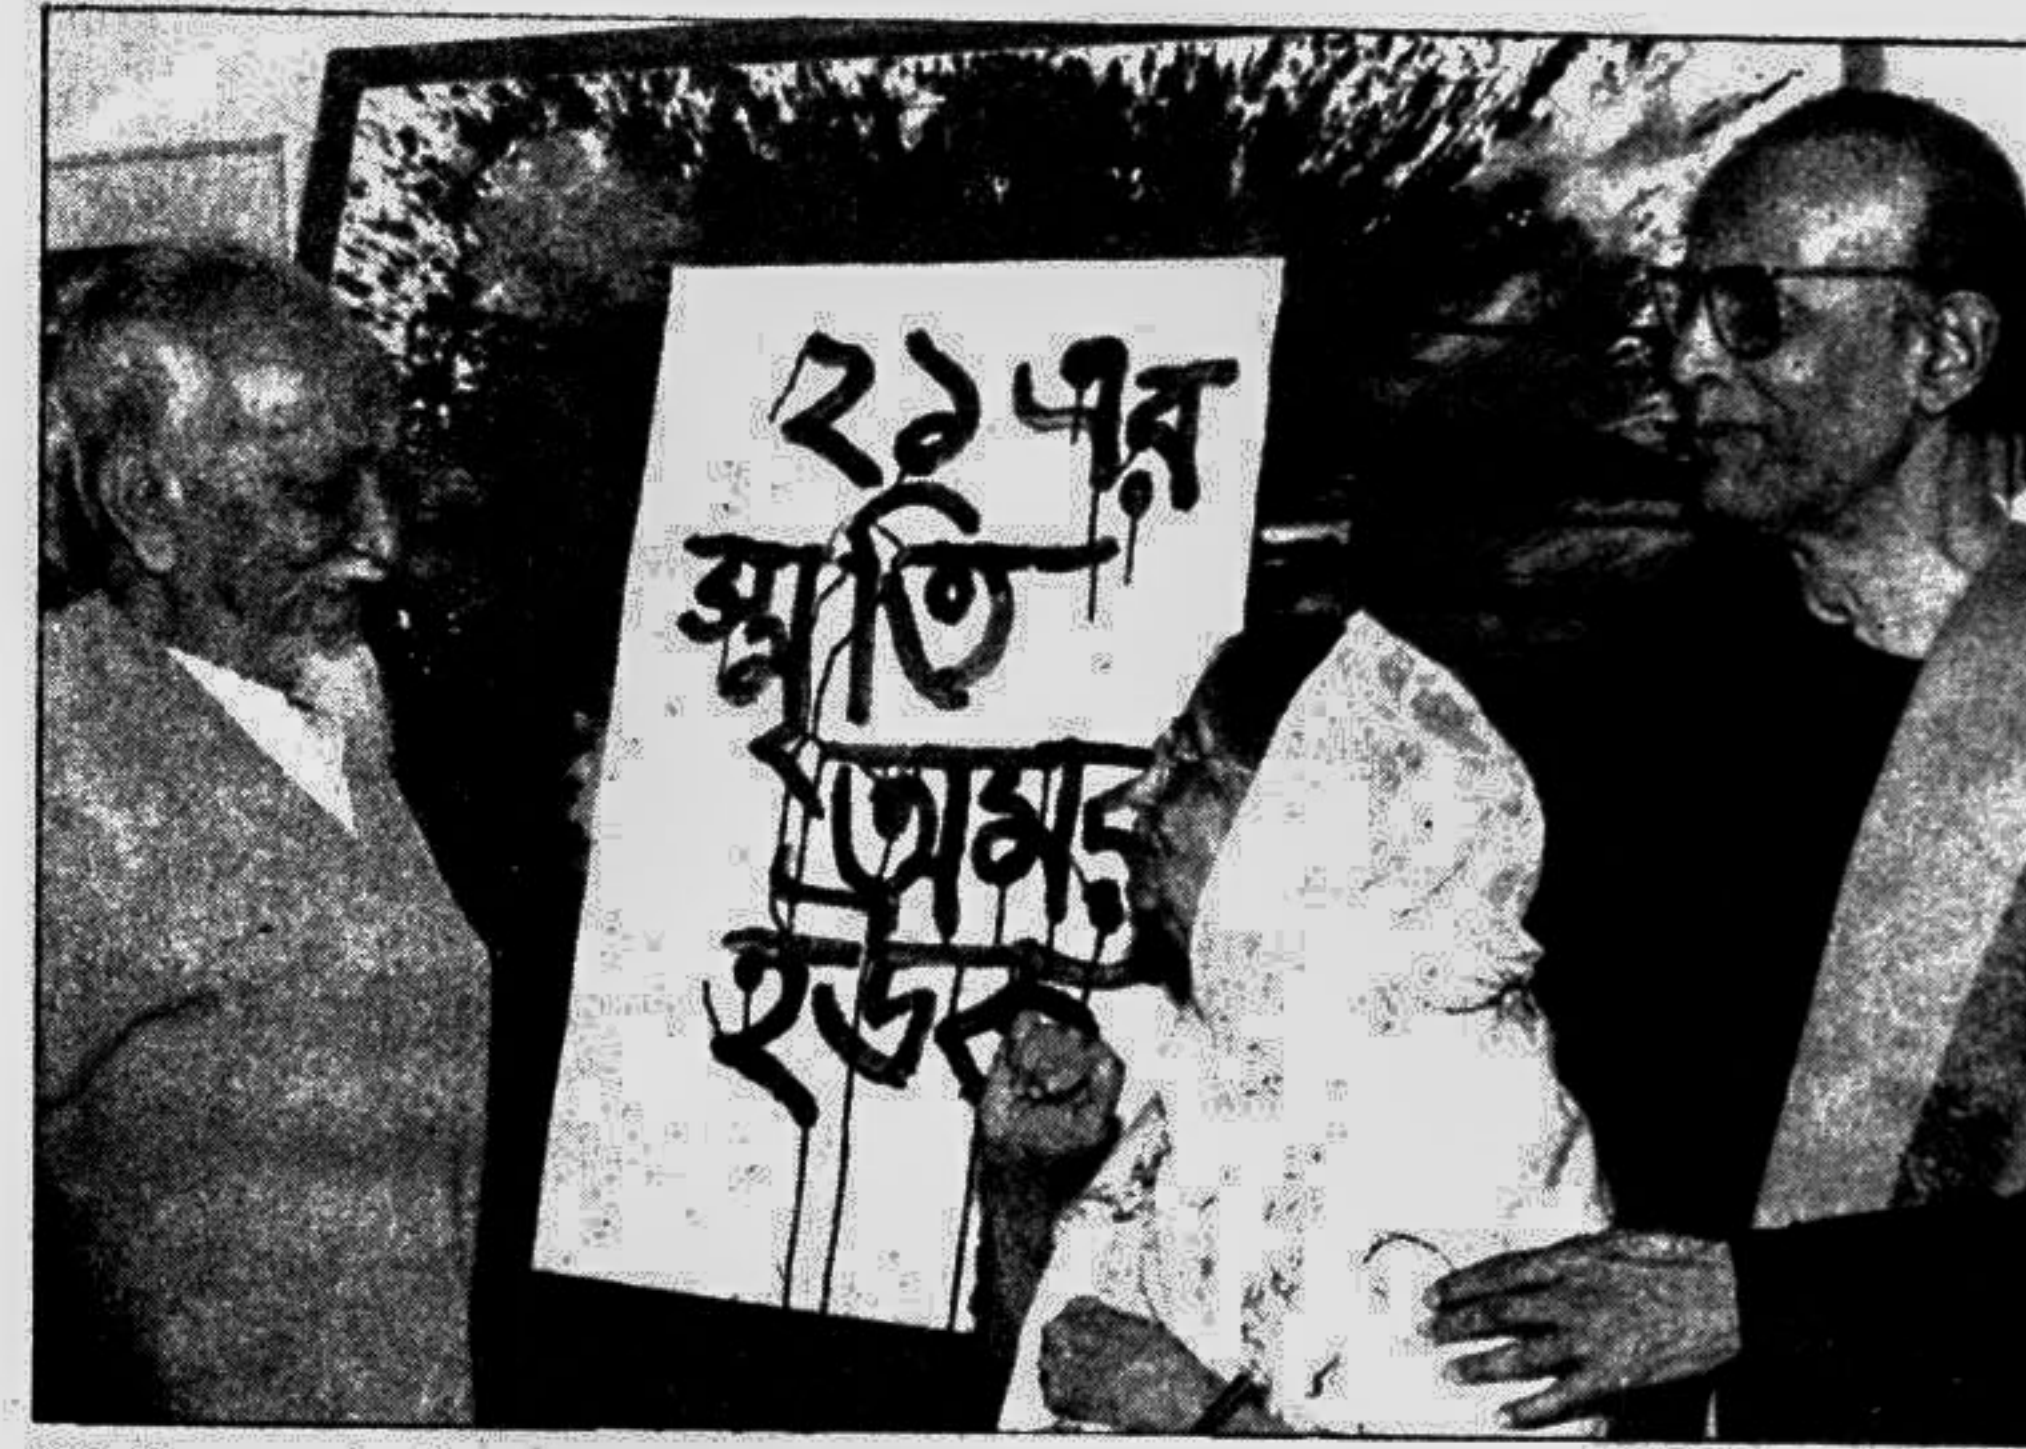 ২১এর
স্মৃতি
অমর
হউক